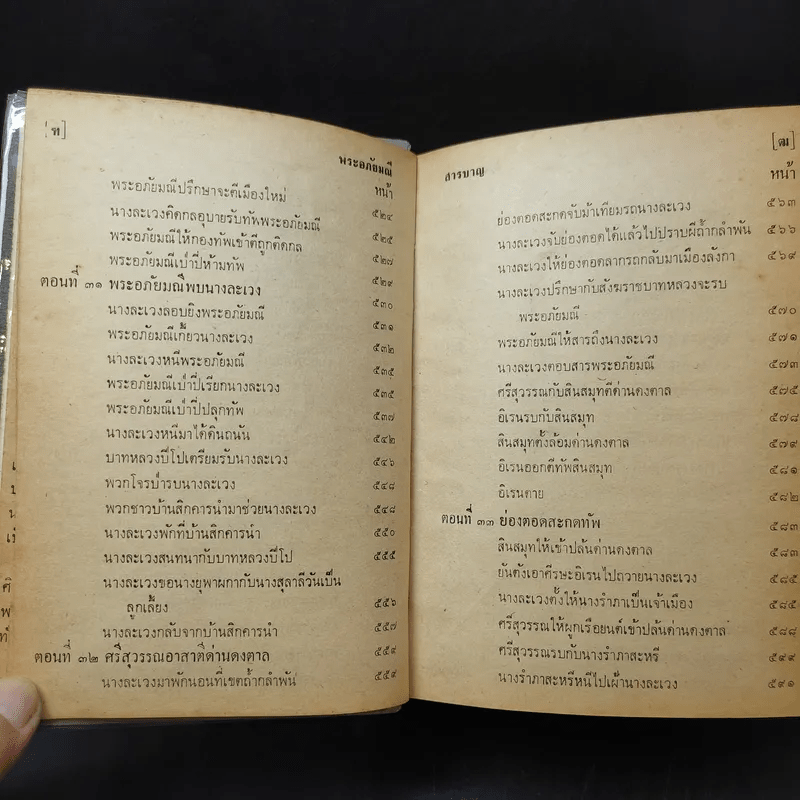 [ฑ]
พระอภัยมณี
หน้า
พระอภัยมณีปรึกษาจะตีเมืองใหม่ ๕๒๔
นางละเวงคิดกลอุบายรับทัพพระอภัยมณี ๕๒๕
พระอภัยมณีให้กองทัพเข้าตีถูกติดกล ๕๒๗
พระอภัยมณีเป่าปี่ห้ามทัพ ๕๒๙
ตอนที่ ๓๑ พระอภัยมณีพบนางละเวง ๕๓๐
นางละเวงลอบยิงพระอภัยมณี ๕๓๑
พระอภัยมณีเกี้ยวนางละเวง ๕๓๒
นางละเวงหนีพระอภัยมณี ๕๓๕
พระอภัยมณีเป่าปี่เรียกนางละเวง ๕๓๕
พระอภัยมณีเป่าปี่ปลุกทัพ ๕๓๗
นางละเวงหนีมาได้ดินถนัน ๕๔๒
บาทหลวงปีโปเตรียมรับนางละเวง ๕๔๖
พวกโจรป่ารบนางละเวง ๕๔๘
พวกชาวบ้านสิกคารนำมาช่วยนางละเวง ๕๔๘
นางละเวงพักที่บ้านสิกคารนำ ๕๕๐
นางละเวงสนทนากับบาทหลวงปีโป ๕๕๕
นางละเวงขอนางยุพาผกากับนางสุลาลีวันเป็น
ลูกเลี้ยง ๕๕๖
นางละเวงกลับจากบ้านสิกคารนำ ๕๕๗
ตอนที่ ๓๒ ศรีสุวรรณอาสาตีด่านดงตาล ๕๕๙
นางละเวงมาพักนอนที่เขตถ้ำกลำพัน ๕๕๙
สารบาญ
[ฒ]
หน้า
ย่องตอดสะกดจับม้าเทียมรถนางละเวง ๕๖๓
นางละเวงจับย่องตอดได้แล้วไปปราบผีถ้ำกลำพัน ๕๖๖
นางละเวงให้ย่องตอดลากรถกลับมาเมืองลังกา ๕๖๙
นางละเวงปรึกษากับสังฆราชบาทหลวงจะรบ
พระอภัยมณี ๕๗๐
พระอภัยมณีให้สารถึงนางละเวง ๕๗๑
นางละเวงตอบสารพระอภัยมณี ๕๗๓
ศรีสุวรรณกับสินสมุทตีด่านดงตาล ๕๗๕
อิเรนรบกับสินสมุท ๕๗๘
สินสมุทตั้งล้อมด่านดงตาล ๕๗๙
อิเรนออกตีทัพสินสมุท ๕๘๑
อิเรนตาย ๕๘๒
ตอนที่ ๓๓ ย่องตอดสะกดทัพ ๕๘๓
สินสมุทให้เข้าปล้นด่านดงตาล ๕๘๓
ยันตังเอาศีรษะอิเรนไปถวายนางละเวง ๕๘๕
นางละเวงตั้งให้นางรำภาเป็นเจ้าเมือง ๕๘๕
ศรีสุวรรณให้ผูกเรือยนต์เข้าปล้นด่านดงตาล ๕๘๘
ศรีสุวรรณรบกับนางรำภาสะหรี ๕๙๙
นางรำภาสะหรีหนีไปเฝ้านางละเวง ๕๙๑